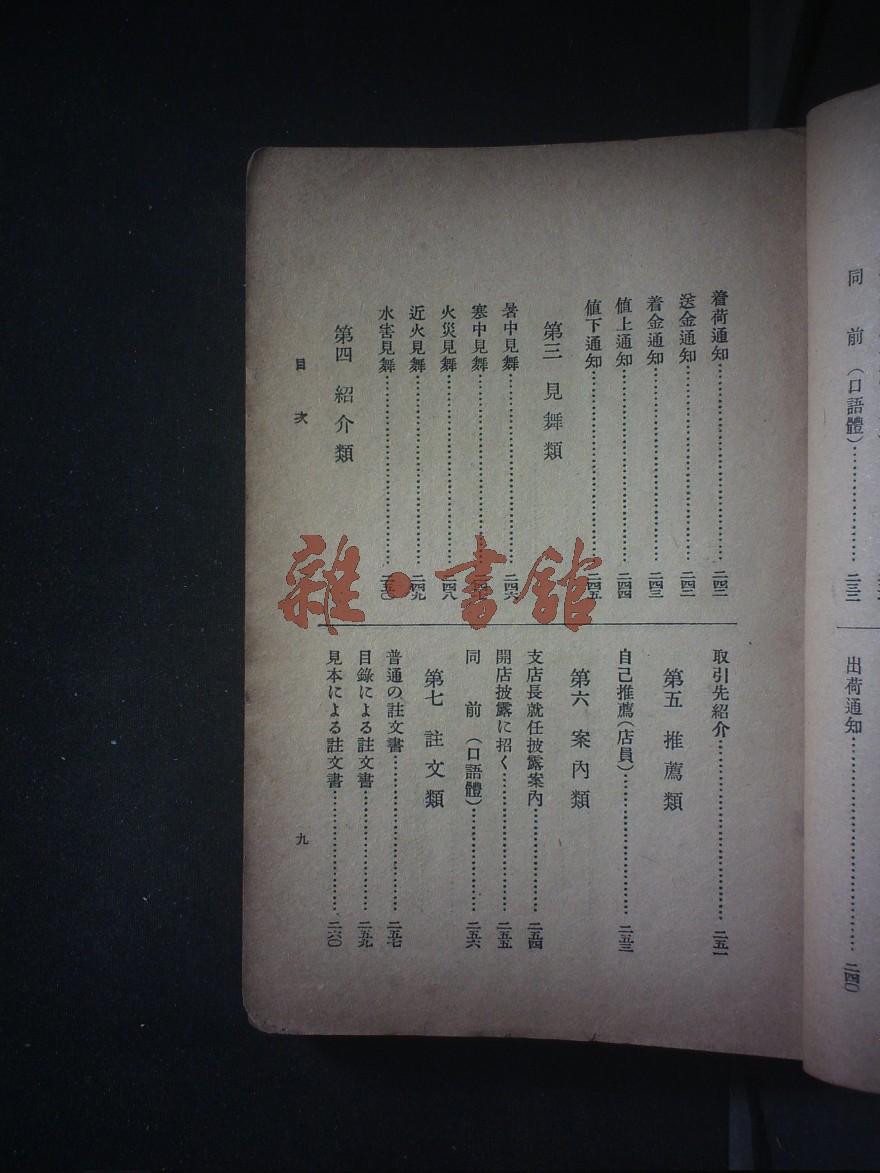 同 前 (口語體)……二三二
出荷通知……二四〇
着荷通知……二四二
送金通知……二四二
着金通知……二四三
値上通知……二四四
値下通知……二四五
第三 見舞類
暑中見舞……二四六
寒中見舞……二四七
火災見舞……二四八
近火見舞……二四九
水害見舞……二五〇
第四 紹介類
取引先紹介……二五一
第五 推薦類
自己推薦(店員)……二五三
第六 案內類
支店長就任披露案內……二五四
開店披露に招く……二五五
同 前 (口語體)……二五六
第七 註文類
普通の註文書……二五七
目錄による註文書……二五九
見本による註文書……二六〇
目 次
九
雜·書館